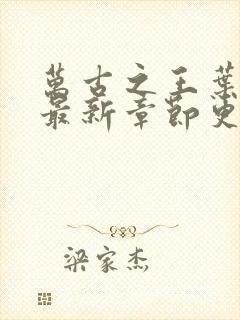 萬古之王葉
最新章節更
梁家杰